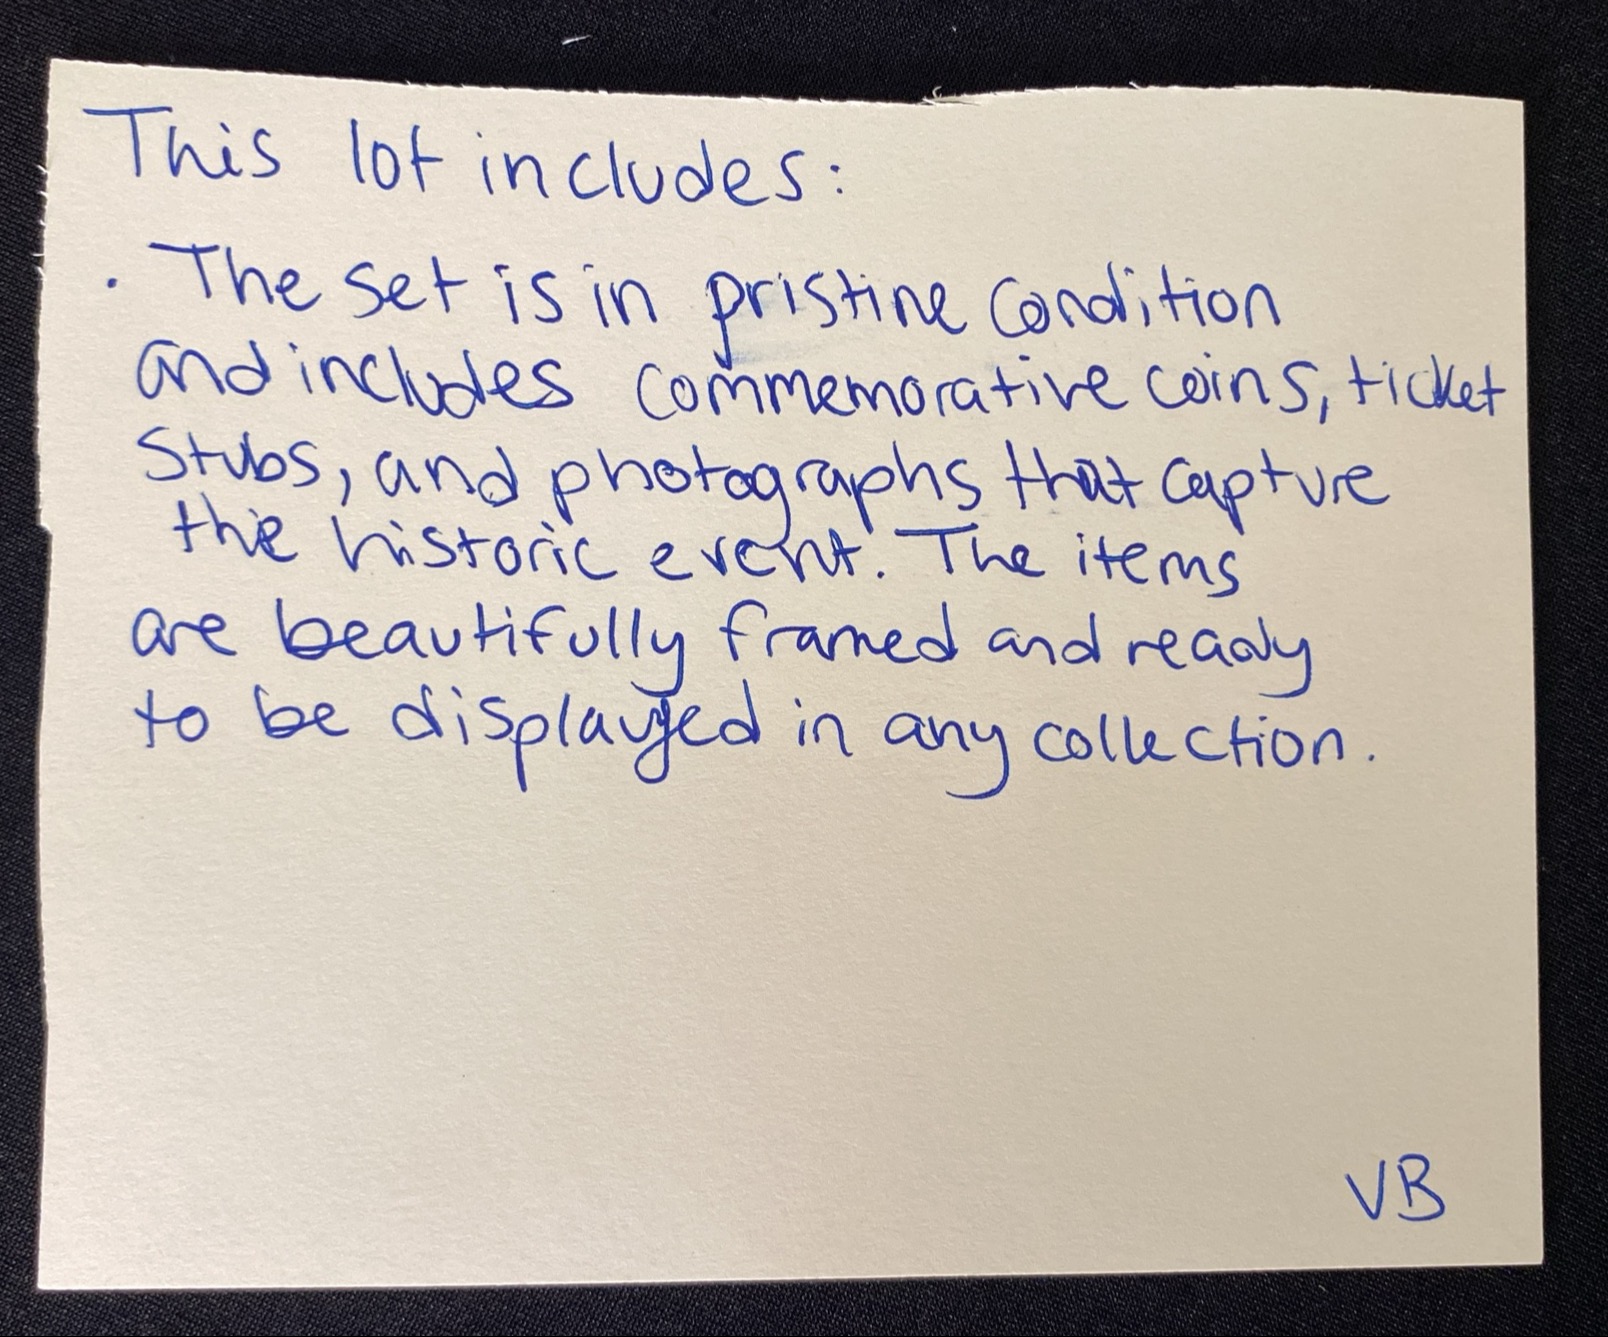 This lot includes:
· The set is in pristine condition
and includes commemorative coins, ticket
stubs, and photographs that capture
the historic event. The items
are beautifully framed and ready
to be displayed in any collection.
VB